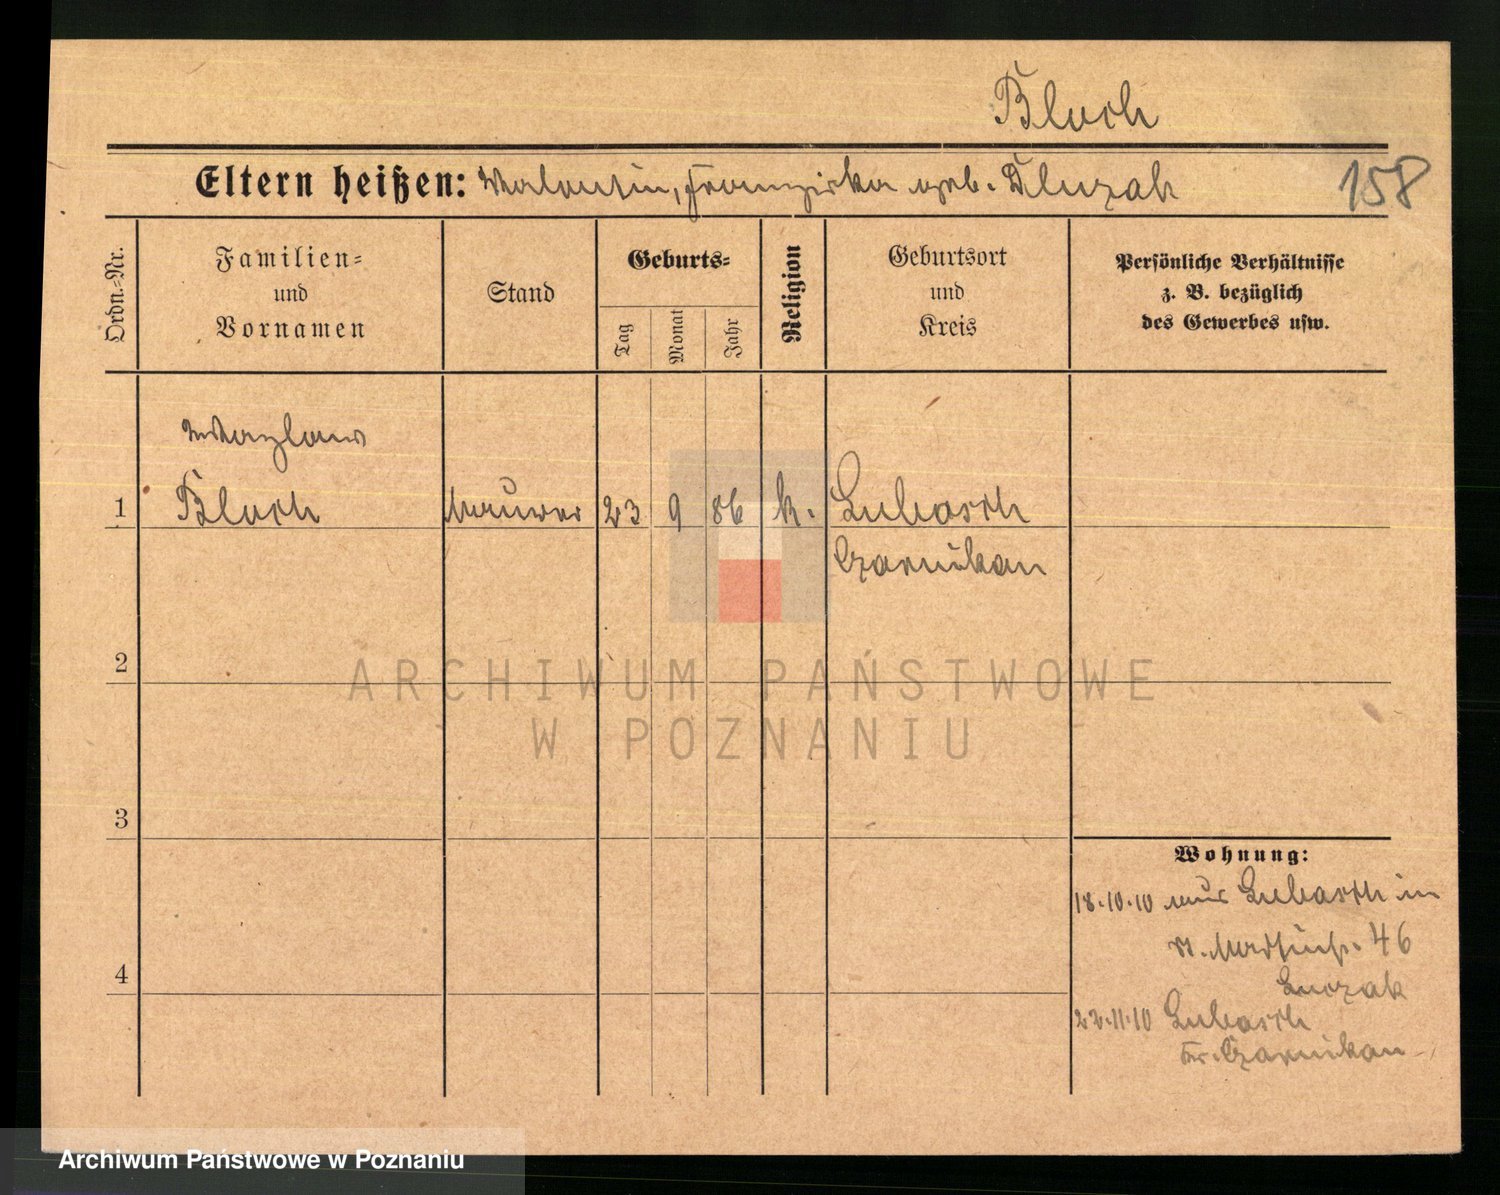 Bloch
Eltern heißen: Valentin, Franziska geb. Dluzak
158
Ordn.-Nr.
Familien-
und
Vornamen
Stand
Geburts-
Tag
Monat
Jahr
Religion
Geburtsort
und
Kreis
Persönliche Verhältnisse
z. B. bezüglich
des Gewerbes usw.
Wazlaw
1 Bloch Maurer 23 9 86 k. Lubasch
Czarnikau
2
3
4
Wohnung:
18.10.10 aus Lubasch in
46
Luczak
22.11.10 Lubasch
Kr. Czarnikau
ARCHIWUM PAŃSTWOWE
W POZNANIU
Archiwum Państwowe w Poznaniu